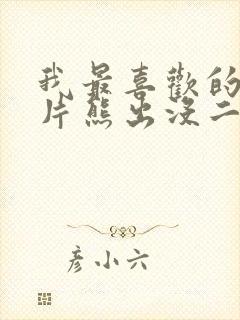 我最喜歡的
片熊出沒二
彦小六